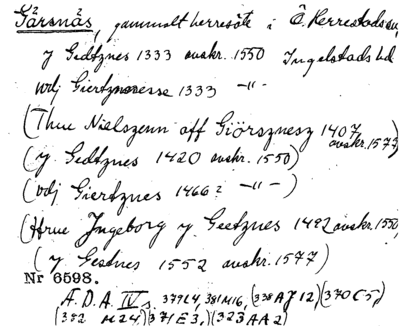 Gärsnäs, gammalt herresäte i Ö. Herrestads sn,
y Gedtznes 1333 avskr. 1550 Ingelstads hd
wdj Giertznesse 1333 -"-
(Thue Nielszenn aff Giörsznesz 1407 avskr. 1577)
(y Gedtznes 1420 avskr. 1550)
(vdj Giertznes 1466? -"-)
(Hrue Ingeborg y Geetznes 1492 avskr. 1550)
(y Gestnes 1552 avskr. 1577)
Nr 6598.
A.D.A. IV s. 379L4, 381M16, (338AJ12), (370C5)
(382 M24) (371E3,) (323AA2)